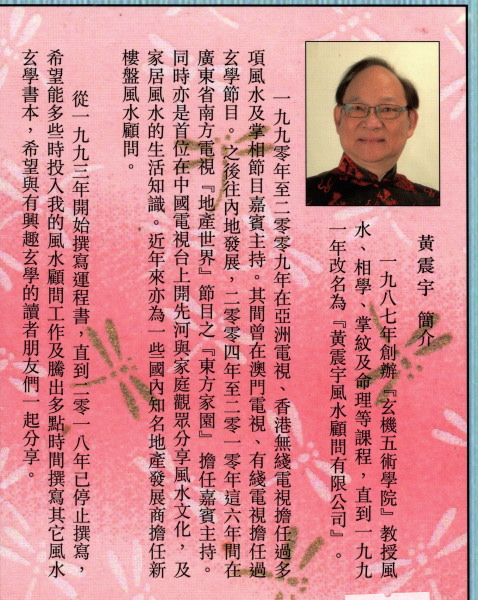 黃震宇　簡介
一九八七年創辦『玄機五術學院』教授風
水、相學、掌紋及命理等課程，直到一九九
一年改名為『黃震宇風水顧問有限公司』。
一九九零年至二零零九年在亞洲電視、香港無綫電視擔任過多
項風水及掌相節目嘉賓主持。其間曾在澳門電視、有綫電視擔任過
玄學節目。之後往內地發展，二零零四年至二零一零年這六年間在
廣東省南方電視『地產世界』節目之『東方家園』擔任嘉賓主持。
同時亦是首位在中國電視台上開先河與家庭觀眾分享風水文化，及
家居風水的生活知識。近年來亦為一些國內知名地產發展商擔任新
樓盤風水顧問。
從一九九三年開始撰寫運程書，直到二零一八年已停止撰寫，
希望能多些時投入我的風水顧問工作及騰出多點時間撰寫其它風水
玄學書本，希望與有興趣玄學的讀者朋友們一起分享。